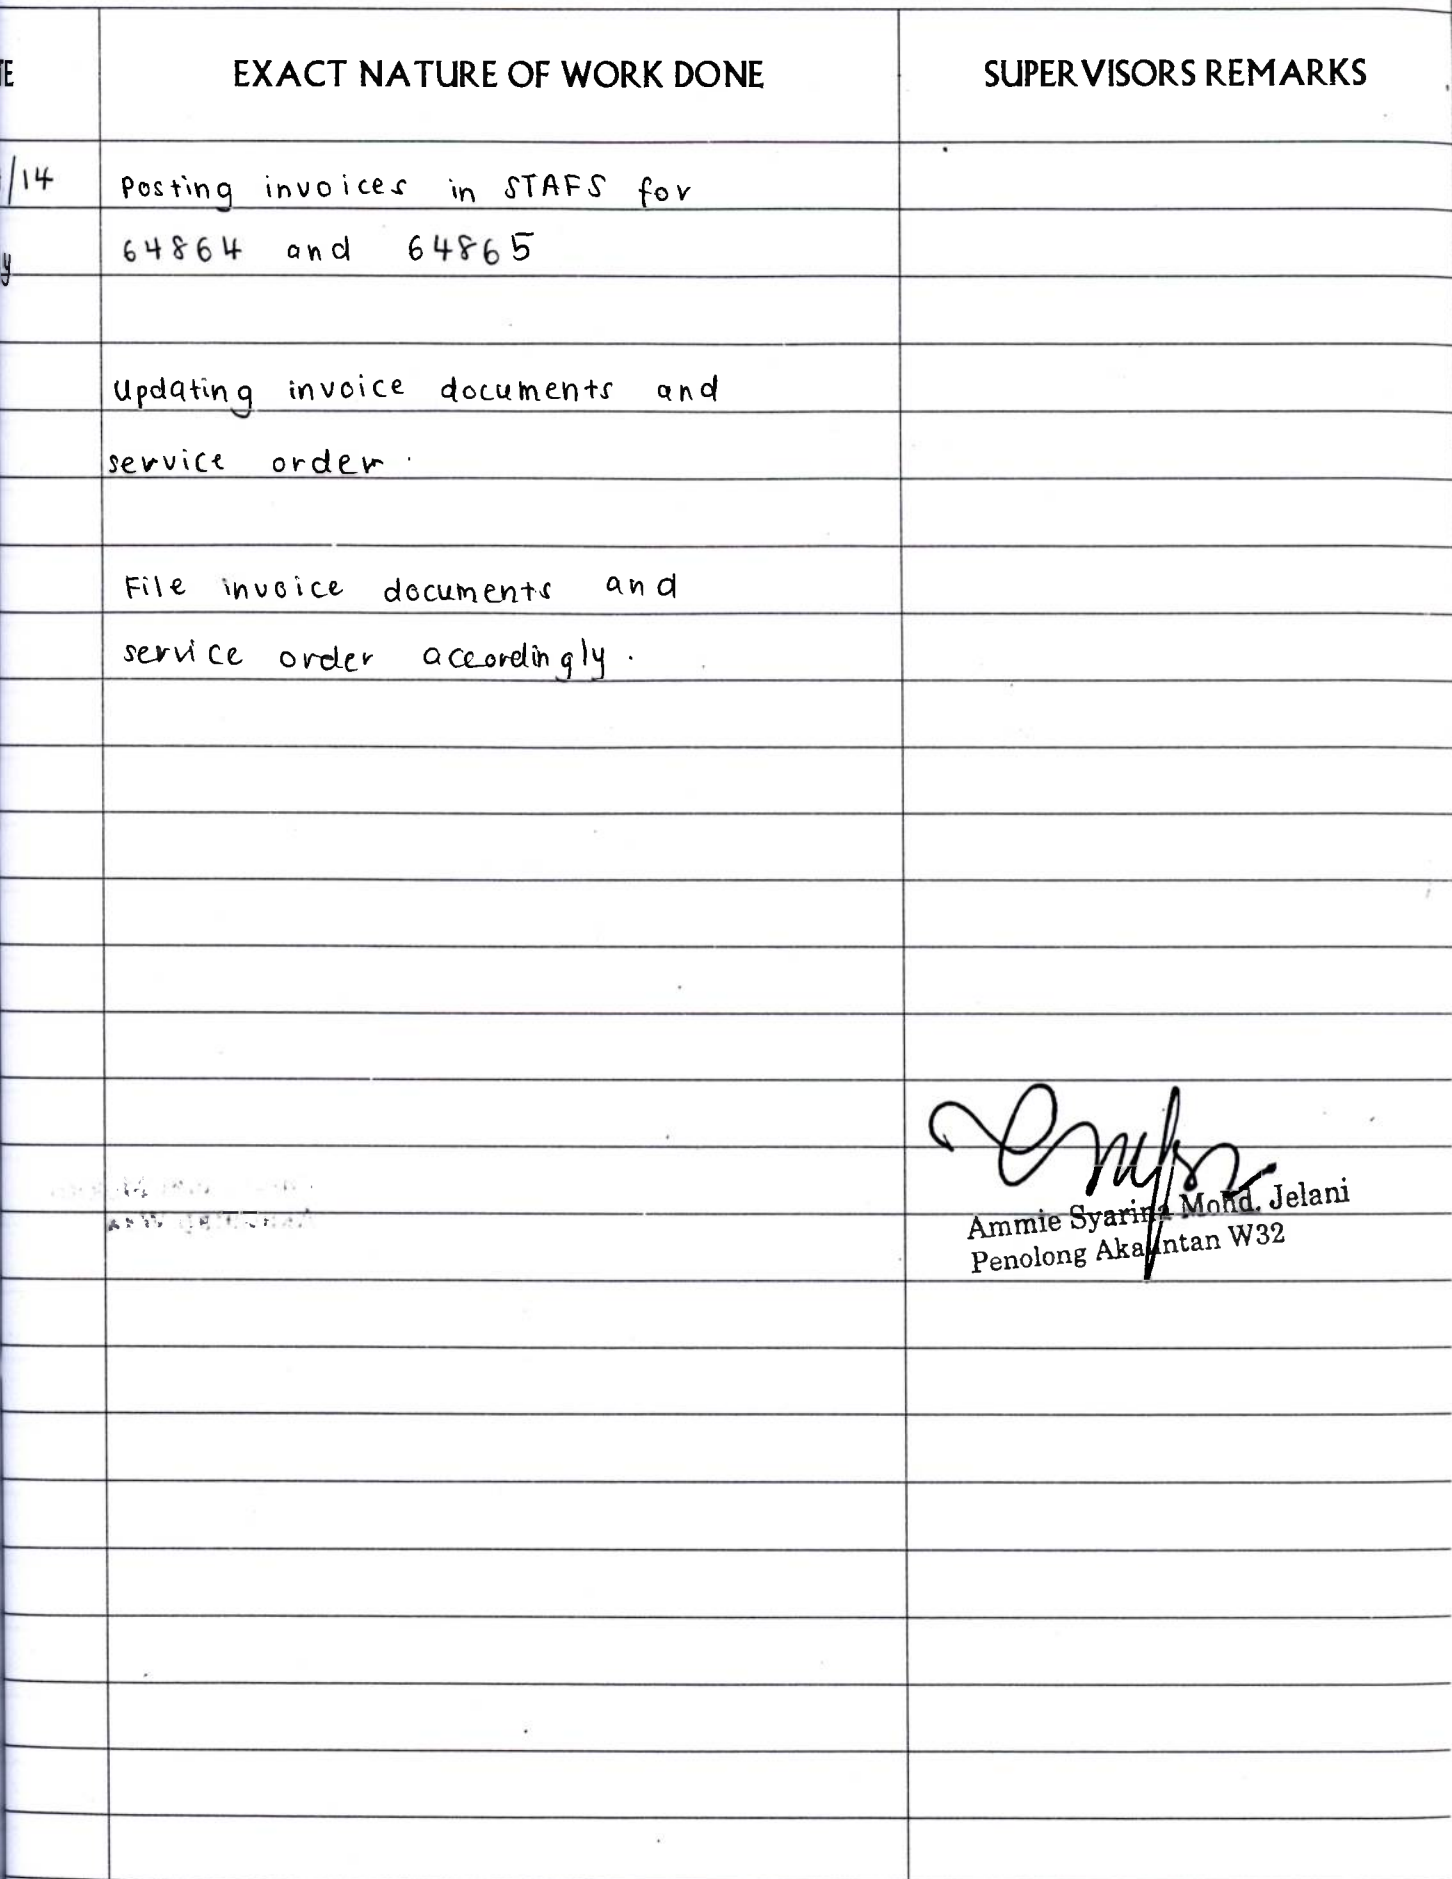 TE
EXACT NATURE OF WORK DONE
SUPERVISORS REMARKS
/14
Posting invoices in STAFS for
64864 and 64865
y
Updating invoice documents and
service order.
File invoice documents and
service order accordingly.
Ammie Syarina Mohd. Jelani
Penolong Akauntan W32